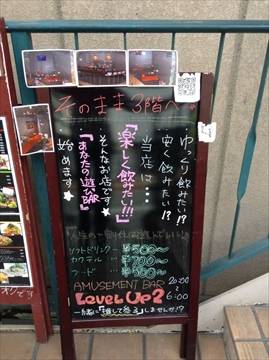 そのまま3階へ
ゆっくり飲みたい!?
安く飲みたい!?
当店は…
『楽しく飲みたい!!!』
そんなお店です★
『あなたの遊びBAR』
始めます★
ソフトドリンク ¥500〜
カクテル ¥700〜
フード ¥500〜
AMUSEMENT BAR
Level Up2
20:00
6:00